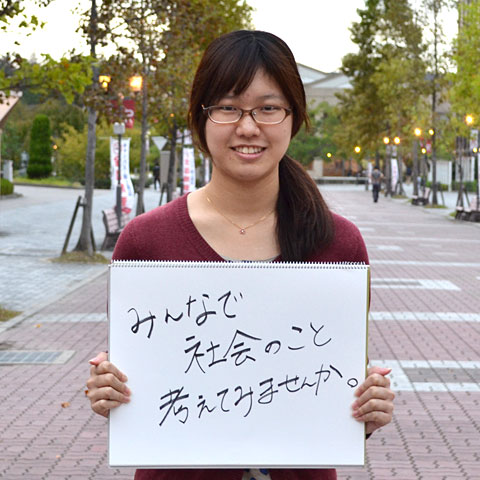 みんなで
社会のこと
考えてみませんか。